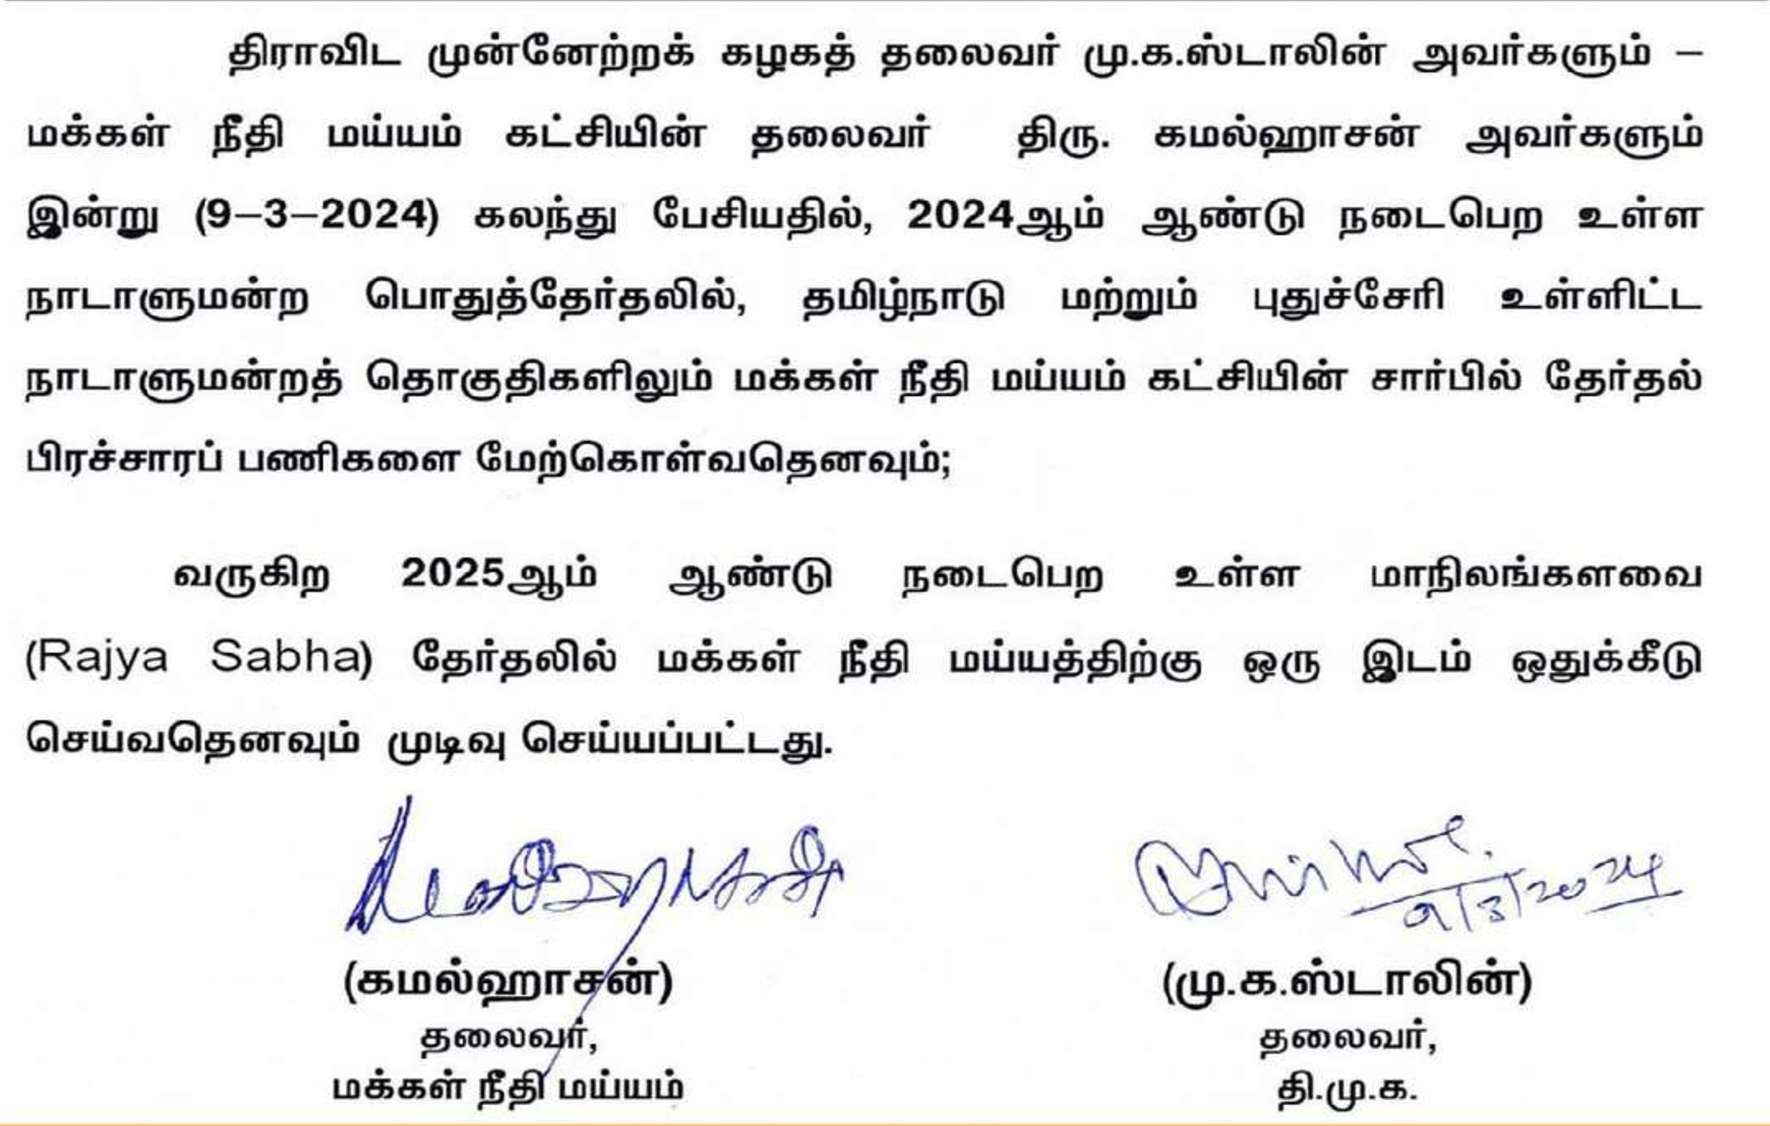 திராவிட முன்னேற்றக் கழகத் தலைவர் மு.க.ஸ்டாலின் அவர்களும் –
மக்கள் நீதி மய்யம் கட்சியின் தலைவர் திரு. கமல்ஹாசன் அவர்களும்
இன்று (9–3–2024) கலந்து பேசியதில், 2024ஆம் ஆண்டு நடைபெற உள்ள
நாடாளுமன்ற பொதுத்தேர்தலில், தமிழ்நாடு மற்றும் புதுச்சேரி உள்ளிட்ட
நாடாளுமன்றத் தொகுதிகளிலும் மக்கள் நீதி மய்யம் கட்சியின் சார்பில் தேர்தல்
பிரச்சாரப் பணிகளை மேற்கொள்வதெனவும்;
வருகிற 2025ஆம் ஆண்டு நடைபெற உள்ள மாநிலங்களவை
(Rajya Sabha) தேர்தலில் மக்கள் நீதி மய்யத்திற்கு ஒரு இடம் ஒதுக்கீடு
செய்வதெனவும் முடிவு செய்யப்பட்டது.
9/3/2024
(கமல்ஹாசன்) (மு.க.ஸ்டாலின்)
தலைவர், தலைவர்,
மக்கள் நீதி மய்யம் தி.மு.க.